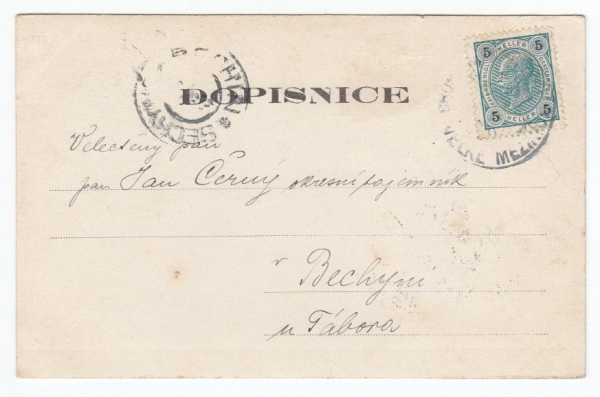 BECHYN * BECHYN
DOPISNICE
5 HELLER 5
5 HELLER 5
VELKÉ MEZI
Velectěný pan
pan Jan Černý okresní tajemník
v Bechyni
u Tábora